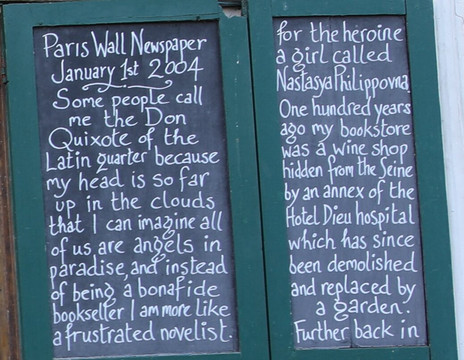 Paris Wall Newspaper
January 1st 2004
Some people call
me the Don
Quixote of the
Latin quarter because
my head is so far
up in the clouds
that I can imagine all
of us are angels in
paradise, and instead
of being a bonafide
bookseller I am more like
a frustrated novelist.
for the heroine
a girl called
Nastasya Philippovna.
One hundred years
ago my bookstore
was a wine shop
hidden from the Seine
by an annex of the
Hotel Dieu hospital
which has since
been demolished
and replaced by
a garden.
Further back in